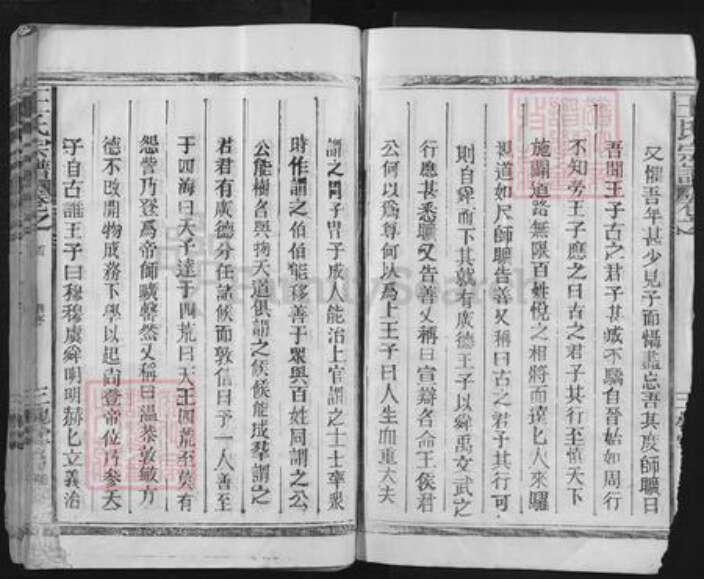 又懼吾年甚少見子而懾盡忘吾其度師曠曰
吾聞王子古之君子甚成不驕自晉始如周行
不知勞王子應之曰古之君子其行至慎天下
施關道路無限百姓悅之相將而遠匕人來驩
視道如尺師曠告善又稱曰古之君子其行可
則自舜而下其孰有廣德王子以舜禹文武之
行應甚悉曠又告善又稱曰宣辯各命王侯君
公何以爲尊何以爲上王子曰人生而重丈夫
謂之冑子冑子成人能治上官謂之士士率衆
時作謂之伯伯能移善于眾與百姓同謂之公
公能樹名與物天道俱謂之候候能成羣謂之
君君有廣德分任諸候而敦信曰予一人善至
于四海曰天子達于四荒曰天王四荒至莫有
怨訾乃登爲帝師曠罄然又稱曰溫恭敦敏方
德不改開物成務下學以起尚登帝位乃參天
子自古誰王子曰穆穆虞舜明明赫匕立義治
王氏宗譜
王氏宗譜
FamilySearch